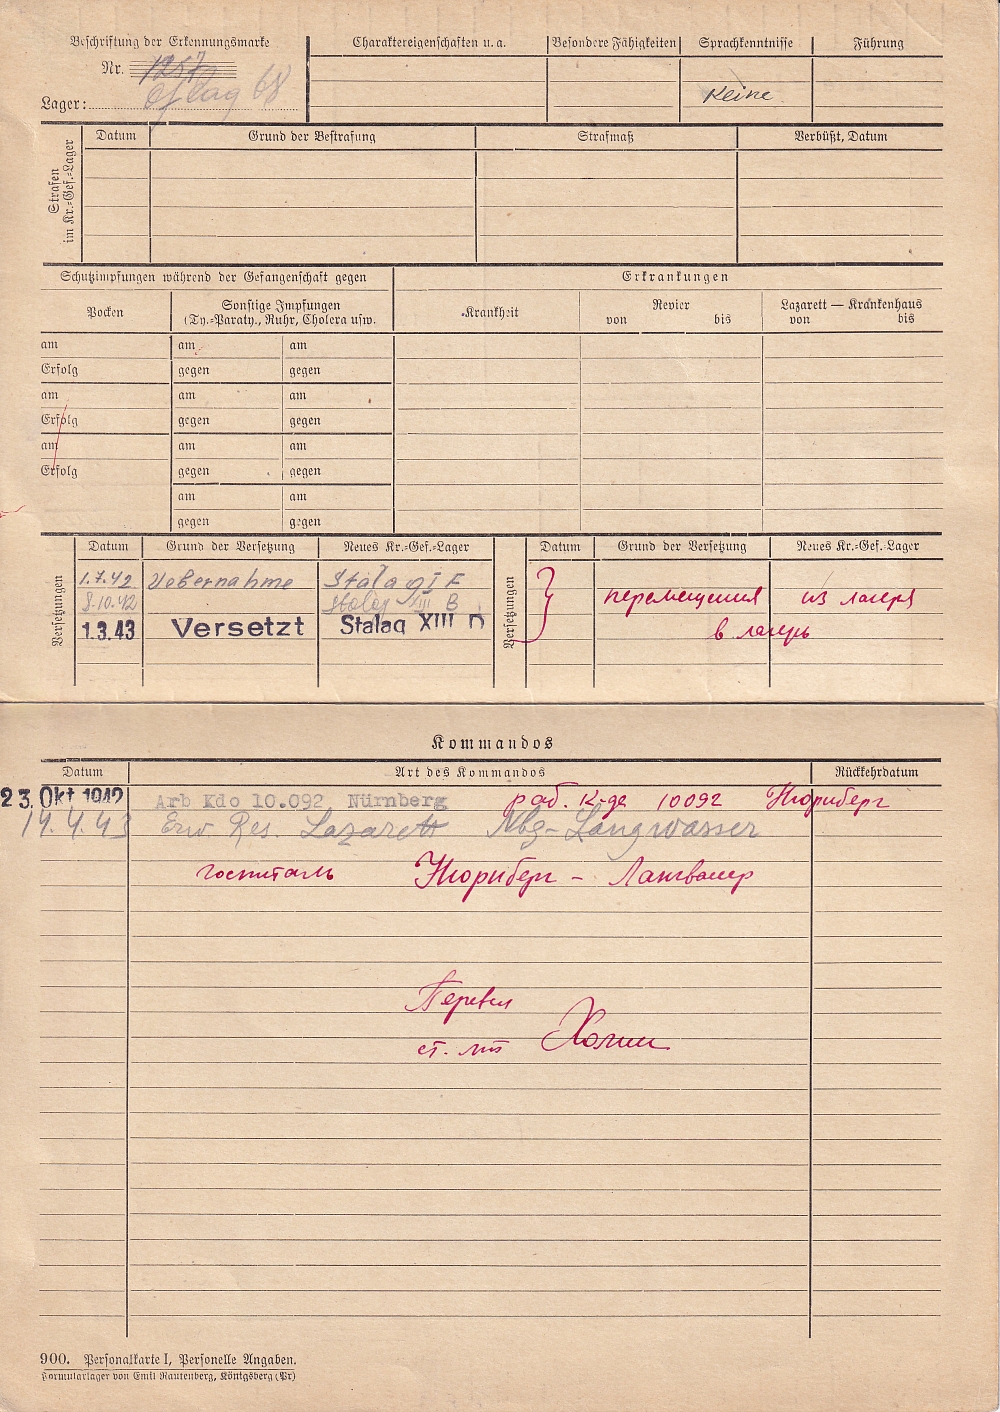 Beschriftung der Erkennungsmarke
Nr. 1257
Lager: Oflag 68
Charaktereigenschaften u. a.
Besondere Fähigkeiten
Sprachkenntnisse
Führung
Keine
Strafen im Kr.-Gef.-Lager
Datum Grund der Bestrafung Strafmaß Verbüßt, Datum
Schutzimpfungen während der Gefangenschaft gegen
Erkrankungen
Pocken
Sonstige Impfungen
(Ty.-Paraty., Ruhr, Cholera usw.
Krankheit
Revier
von bis
Lazarett — Krankenhaus
von bis
am am am
Erfolg gegen gegen
am am am
Erfolg gegen gegen
am am am
Erfolg gegen gegen
am am
gegen gegen
Versetzungen
Datum Grund der Versetzung Neues Kr.-Gef.-Lager
1.7.42 Uebernahme Stalag I F
8.10.42 Stalag XIII B
1.3.43 Versetzt Stalag XIII D
Versetzungen
Datum Grund der Versetzung Neues Kr.-Gef.-Lager
перемещения из лагеря
в лагерь
Kommandos
Datum Art des Kommandos Rückkehrdatum
23. Okt 1942 Arb Kdo 10.092 Nürnberg раб. к-да 10092 Нюрнберг
14.4.43 Erw Res. Lazarett Nbg-Langwasser
госпиталь Нюрнберг - Лангвассер
Перевел
ст. л-т
900. Personalkarte I, Personelle Angaben.
Formularlager von Emil Rautenberg, Königsberg (Pr)